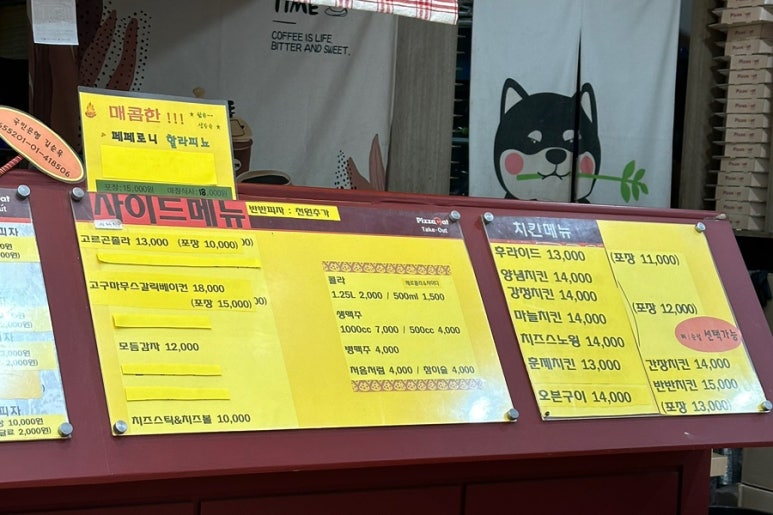 TIME
COFFEE IS LIFE
BITTER AND SWEET.
국민은행 김순옥
매콤한 !!!
페페로니 할라피뇨
포장:15,000원 매장식사:18,000원
사이드메뉴
반반피자 : 천원추가
Pizza
Take-Out
고르곤졸라 13,000 (포장 10,000)
고구마무스갈릭베이컨 18,000
(포장 15,000)
모듬감자 12,000
치즈스틱&치즈볼 10,000
콜라
1.25L 2,000 / 500ml 1,500
생맥주
1000cc 7,000 / 500cc 4,000
병맥주 4,000
처음처럼 4,000 / 참이슬 4,000
치킨메뉴
후라이드 13,000 (포장 11,000)
양념치킨 14,000
강정치킨 14,000
(포장 12,000)
마늘치킨 14,000
치즈스노윙 14,000
선택가능
훈제치킨 13,000
간장치킨 14,000
오븐구이 14,000
반반치킨 15,000
(포장 13,000)
피자
피자
10,000원
2,000원)